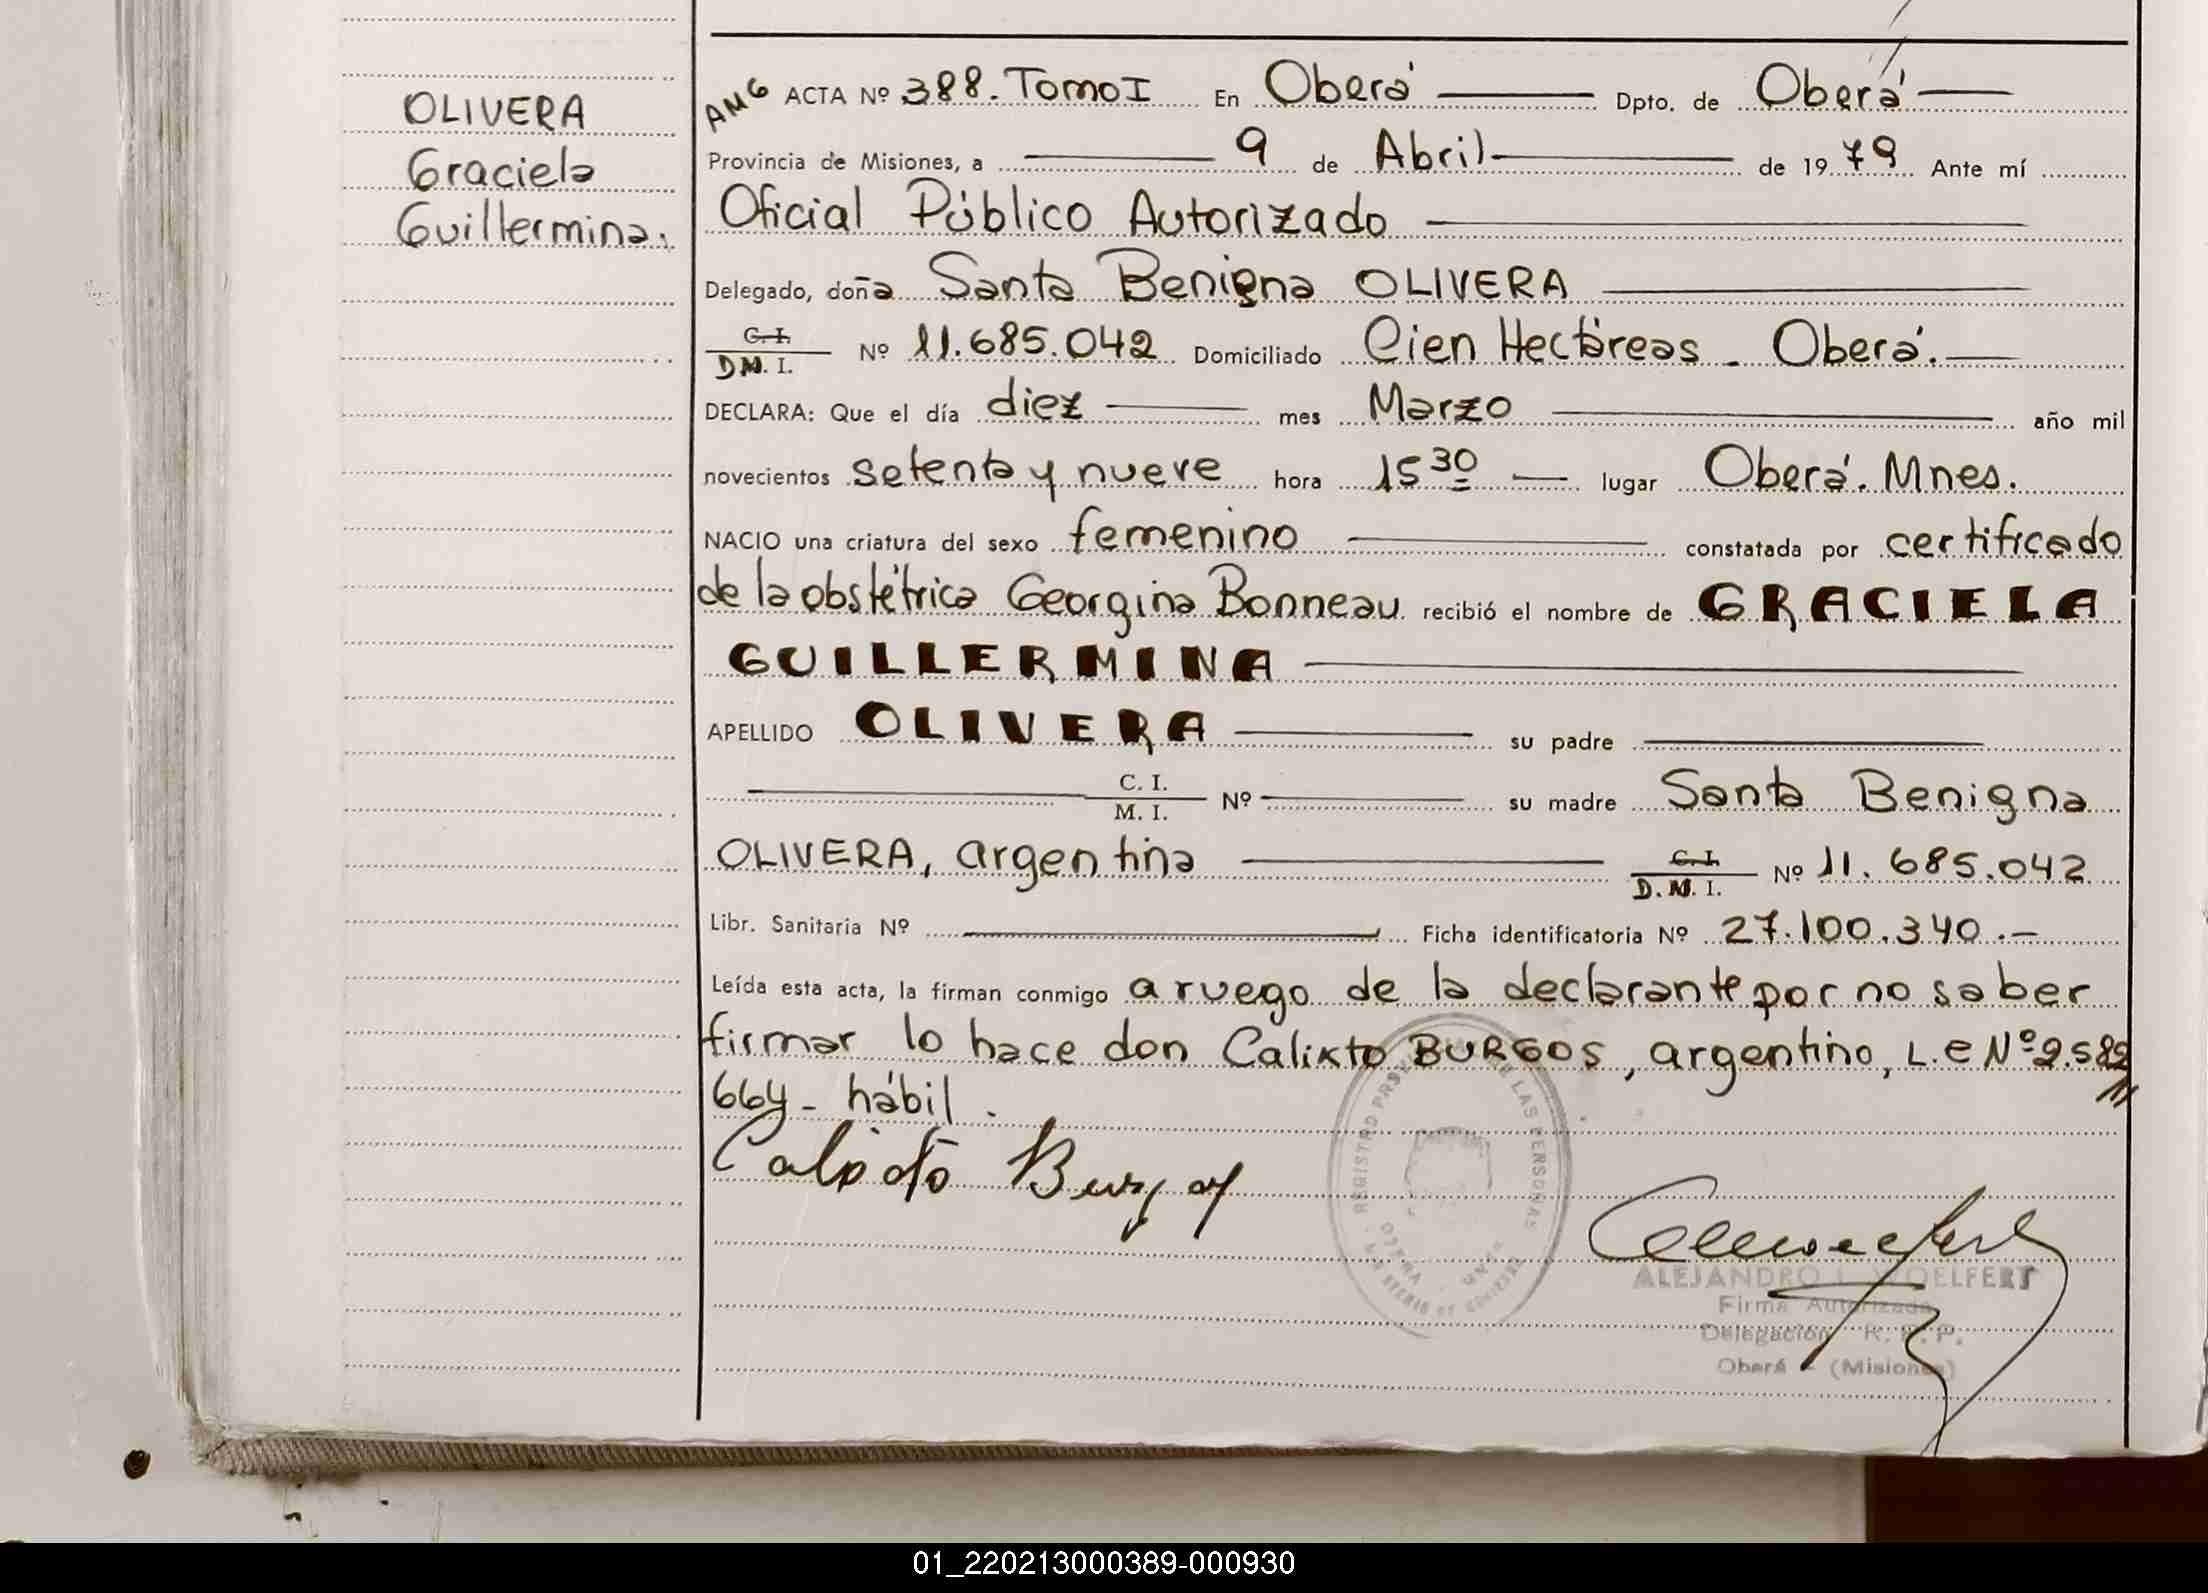 OLIVERA
Graciela
Guillermina.
AMG ACTA Nº 388. Tomo I En Oberá Dpto. de Oberá
Provincia de Misiones, a 9 de Abril de 1979 Ante mí
Oficial Público Autorizado
Delegado, doña Santa Benigna OLIVERA
C. I.
D.N. I. Nº 11.685.042 Domiciliado Cien Hectáreas - Oberá.
DECLARA: Que el día diez mes Marzo año mil
novecientos setenta y nueve hora 15 30 lugar Oberá. Mnes.
NACIO una criatura del sexo femenino constatada por certificado
de la obstétrica Georgina Bonneau recibió el nombre de GRACIELA
GUILLERMINA
APELLIDO OLIVERA su padre
C. I.
M. I. Nº su madre Santa Benigna
OLIVERA, argentina C. I.
D. N. I. Nº 11.685.042
Libr. Sanitaria Nº Ficha identificatoria Nº 27.100.340.-
Leída esta acta, la firman conmigo a ruego de la declarante por no saber
firmar lo hace don Calixto BURGOS, argentino, L.E Nº 2.582
664- hábil.
Calixto Burgos
REGISTRO LAS PERSONAS
ALEJANDRO L. WOELFERT
Firma Autorizada
Delegación R. P. P.
Oberá - (Misiones)
01_220213000389-000930